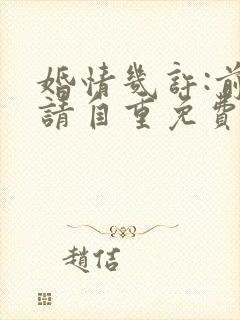 婚情幾許:前
請自重免費
趙佶